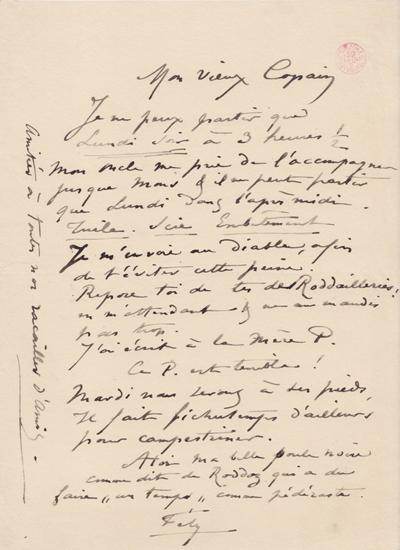 Mon vieux Copain
Je ne peux partir que
Lundi soir à 3 heures 1/2
Mon oncle me prie de l'accompagner
jusque Mons & il ne peut partir
que Lundi dans l'après midi.
Tuile. Scie Embêtement
Je m'envoie au diable, afin
de t'éviter cette peine.
Repose toi de tes de Roddailleries,
en m'attendant & ne me maudis
pas trop.
J'ai écrit à la Mère P.
Ce P. est terrible !
Mardi nous serons à ses pieds,
Il fait fichu temps d'ailleurs
pour campestriner.
A toi ma belle poule noire
comme dit de Roddaz qui a du
faire „un temps„ comme pédéraste.
Fély
Amitiés à toutes nos racailles d'amis -